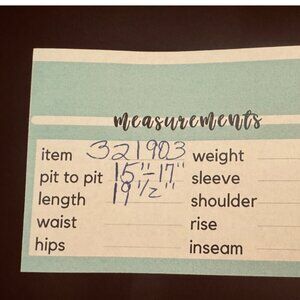 measurements
item 321903 weight
pit to pit 15"-17" sleeve
length 19 1/2" shoulder
waist rise
hips inseam